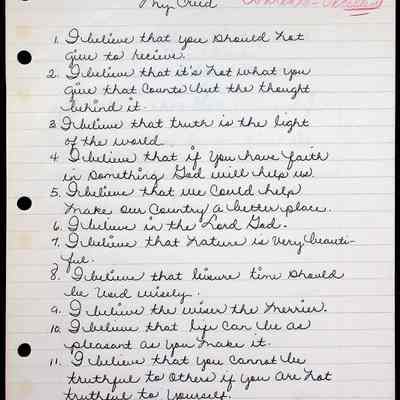 My Creed
1. I believe that you should not
give to recieve.
2. I believe that it's not what you
give that counts but the thought
behind it.
3. I believe that truth is the light
of the world
4. I believe that if you have faith
in something God will help us.
5. I believe that we could help
make our country a better place.
6. I believe in the Lord God.
7. I believe that nature is very beauti-
ful.
8. I believe that leisure time should
be used wisely.
9. I believe the wiser the merrier.
10. I believe that life can be as
pleasant as you make it.
11. I believe that you cannot be
truthful to others if you are not
truthful to yourself.